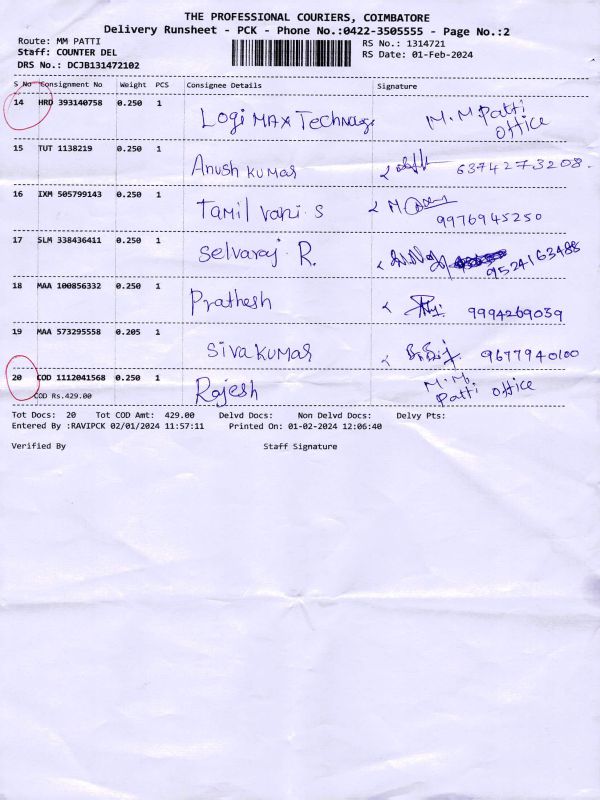 THE PROFESSIONAL COURIERS, COIMBATORE
Delivery Runsheet - PCK - Phone No.:0422-3505555 - Page No.:2
Route: MM PATTI RS No.: 1314721
Staff: COUNTER DEL RS Date: 01-Feb-2024
DRS No.: DCJB131472102
S No Consignment No Weight PCS Consignee Details Signature
14 HRD 393140758 0.250 1 Logi MAX M.M Patti
office
15 TUT 1138219 0.250 1 Anush kumar 6374273208.
16 IXM 505799143 0.250 1 Tamil vani. S 9976945250
17 SLM 338436411 0.250 1 Selvaraj. R. 9524163488
18 MAA 100856332 0.250 1 Prathesh 9994269039
19 MAA 573295558 0.205 1 Siva kumar 9677940100
20 COD 1112041568 0.250 1 Rajesh M.M.
Patti office
COD Rs.429.00
Tot Docs: 20 Tot COD Amt: 429.00 Delvd Docs: Non Delvd Docs: Delvy Pts:
Entered By :RAVIPCK 02/01/2024 11:57:11 Printed On: 01-02-2024 12:06:40
Verified By Staff Signature